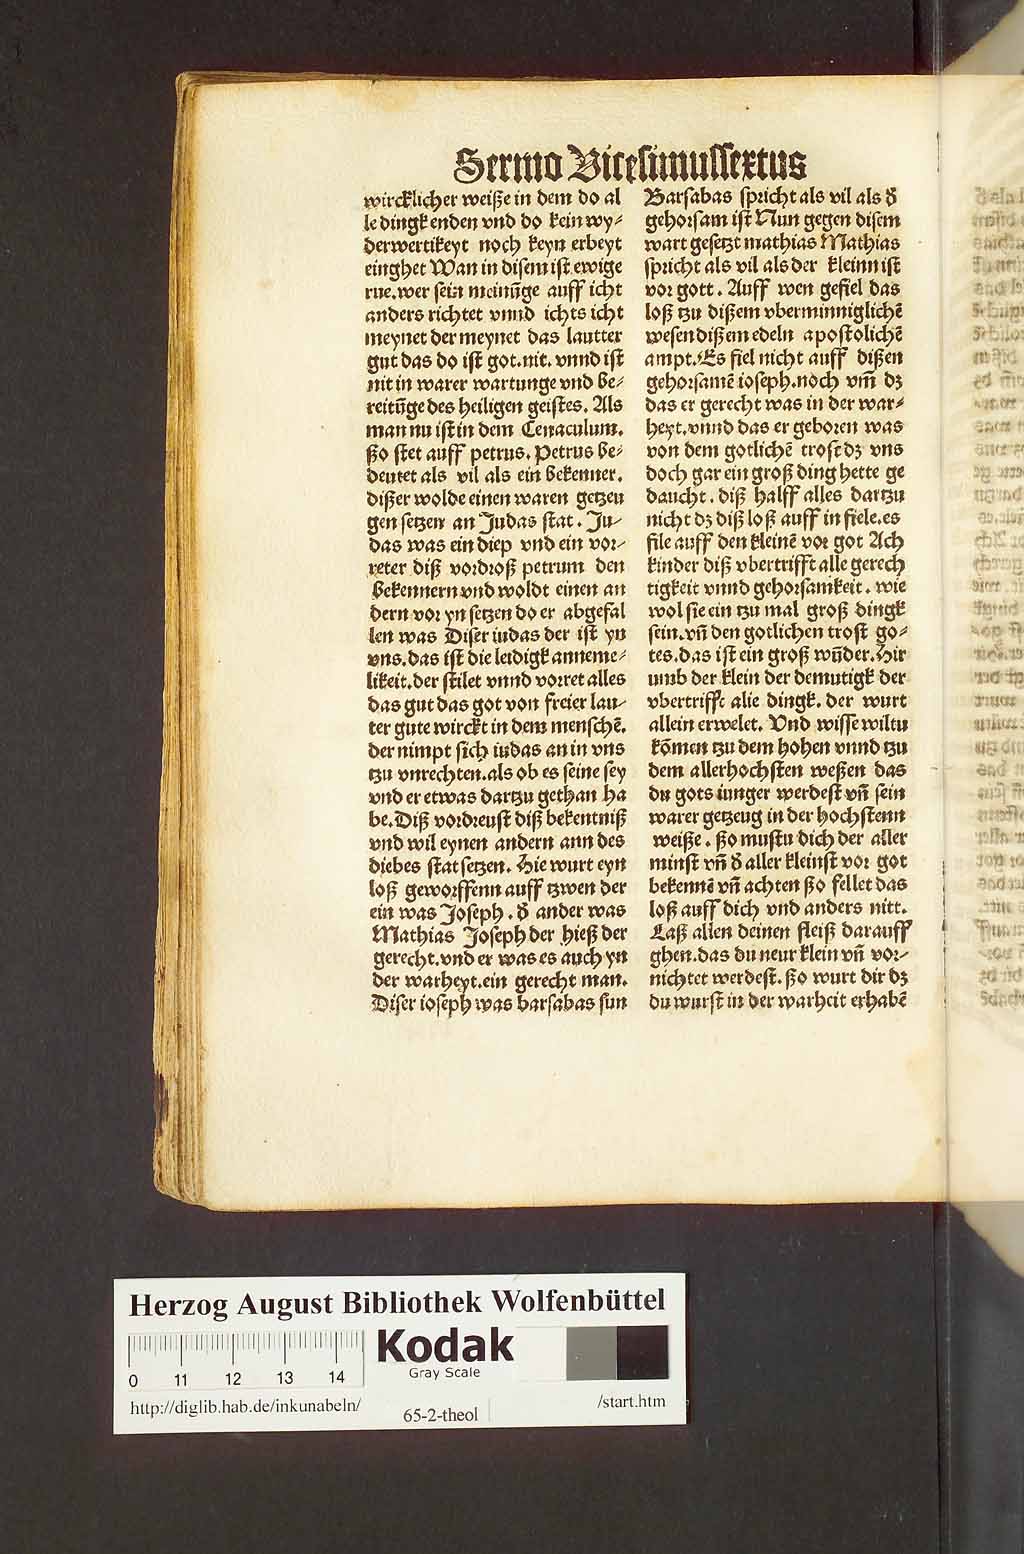 Sermo Vicesimussextus
wircklicher weiße in dem do al
le dingk enden vnd do kein wy⸗
derwertikeyt noch keyn erbeyt
einghet Wan in disem ist ewige
rue. wer sein meinūge auff icht
anders richtet vnnd ichts icht
meynet der meynet das lautter
gut das do ist got. nit. vnnd ist
nit in warer wartunge vnd be⸗
reitūge des heiligen geistes. Als
man nu ist in dem Cenaculum.
ßo stet auff petrus. Petrus be⸗
deutet als vil als ein bekenner.
dißer wolde einen waren getzeu
gen setzen an Judas stat. Ju⸗
das was ein diep vnd ein vor⸗
reter diß vordroß petrum den
bekennern vnd woldt einen an
dern vor yn setzen do er abgefal
len was Diser iudas der ist yn
vns. das ist die leidigk anneme⸗
likeit. der stilet vnnd vorret alles
das gut das got von freier lau⸗
ter gute wirckt in dem menschē.
der nimpt sich iudas an in vns
tzu vnrechten. als ob es seine sey
vnd er etwas dartzu gethan ha
be. Diß vordreust diß bekentniß
vnd wil eynen andern ann des
diebes stat setzen. Hie wurt eyn
loß geworffenn auff tzwen der
ein was Joseph. d̕ ander was
Mathias Joseph der hieß der
gerecht. vnd er was es auch yn
der warheyt. ein gerecht man.
Diser ioseph was barsabas sun
Barsabas spricht als vil als d̕
gehorsam ist Nun gegen disem
wart gesetzt mathias Mathias
spricht als vil als der kleinn ist
vor gott. Auff wen gefiel das
loß tzu dißem vberminniglichē
wesen dißem edeln apostolichē
ampt. Es fiel nicht auff dißen
gehorsamē ioseph. noch vm̄ dz
das er gerecht was in der war⸗
heyt. vnnd das er geboren was
von dem gotlichē trost dz vns
doch gar ein groß ding hette ge
daucht. diß halff alles dartzu
nicht dz diß loß auff in fiele. es
file auff den kleinē vor got Ach
kinder diß vbertrifft alle gerech
tigkeit vnnd gehorsamkeit. wie
wol sie ein tzu mal groß dingk
sein. vn̄ den gotlichen trost go⸗
tes. das ist ein groß wūder. Hir
umb der klein der demutigk der
vbertrifft alle dingk. der wurt
allein erwelet. Vnd wisse wiltu
kōmen tzu dem hohen vnnd tzu
dem allerhochsten weßen das
du gots iunger werdest vn̄ sein
warer getzeug in der hochstenn
weiße. ßo mustu dich der aller
minst vn̄ d̕ aller kleinst vor got
bekennē vn̄ achten ßo fellet das
loß auff dich vnd anders nitt.
Laß allen deinen fleiß darauff
ghen. das du neur klein vn̄ vor⸗
nichtet werdest. ßo wurt dir dz
du wurst in der warheit erhabē
Herzog August Bibliothek Wolfenbüttel
Kodak
Gray Scale
0 11 12 13 14
http://diglib.hab.de/inkunabeln/
65-2-theol
/start.htm